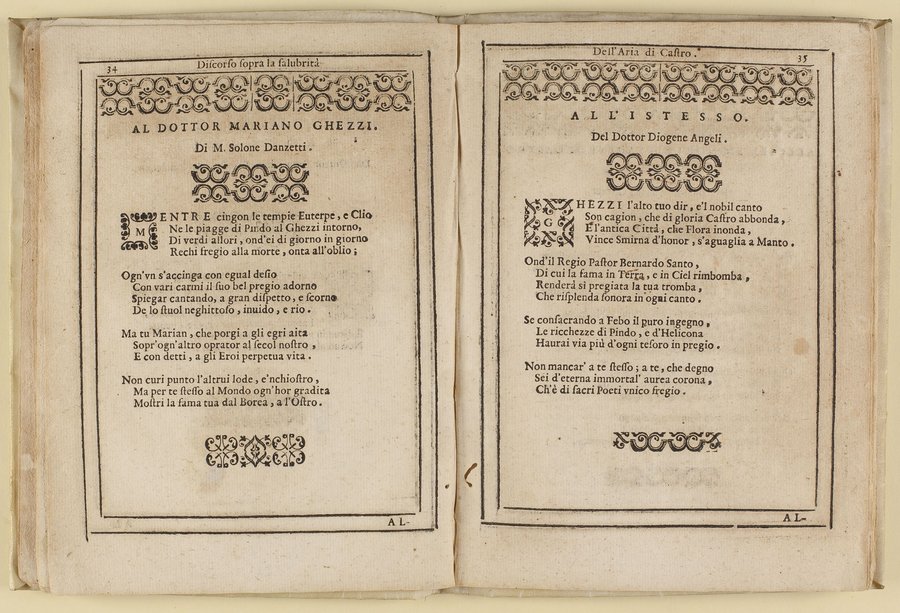 34
Diſcorſo ſopra la ſalubrità
AL DOTTOR MARIANO GHEZZI.
Di M. Solone Danzetti.
MENTRE cingon le tempie Euterpe, e Clio
Ne le piagge di Pindo al Ghezzi intorno,
Di verdi allori, ond'ei di giorno in giorno
Rechi fregio alla morte, onta all'oblio;
Ogn'vn s'accinga con egual deſio
Con vari carmi il ſuo bel pregio adorno
Spiegar cantando, a gran diſpetto, e ſcorno
De lo ſtuol neghittoſo, inuido, e rio.
Ma tu Marian, che porgi a gli egri aita
Sopr'ogn'altro oprator al ſecol noſtro,
E con detti, a gli Eroi perpetua vita.
Non curi punto l'altrui lode, e'nchioſtro,
Ma per te ſteſſo al Mondo ogn'hor gradita
Moſtri la fama tua dal Borea, a l'Oſtro.
AL-
Dell'Aria di Caſtro.
35
ALL'ISTESSO.
Del Dottor Diogene Angeli.
GHEZZI l'alto tuo dir, e'l nobil canto
Son cagion, che di gloria Caſtro abbonda,
E l'antica Città, che Flora inonda,
Vince Smirna d'honor, s'aguaglia a Manto.
Ond'il Regio Paſtor Bernardo Santo,
Di cui la fama in Terra, e in Ciel rimbomba,
Renderà sì pregiata la tua tromba,
Che riſplenda ſonora in ogni canto.
Se conſacrando a Febo il puro ingegno,
Le ricchezze di Pindo, e d'Helicona
Haurai via più d'ogni teſoro in pregio.
Non mancar' a te ſteſſo; a te, che degno
Sei d'eterna immortal' aurea corona,
Ch'è di ſacri Poeti vnico fregio.
AL-